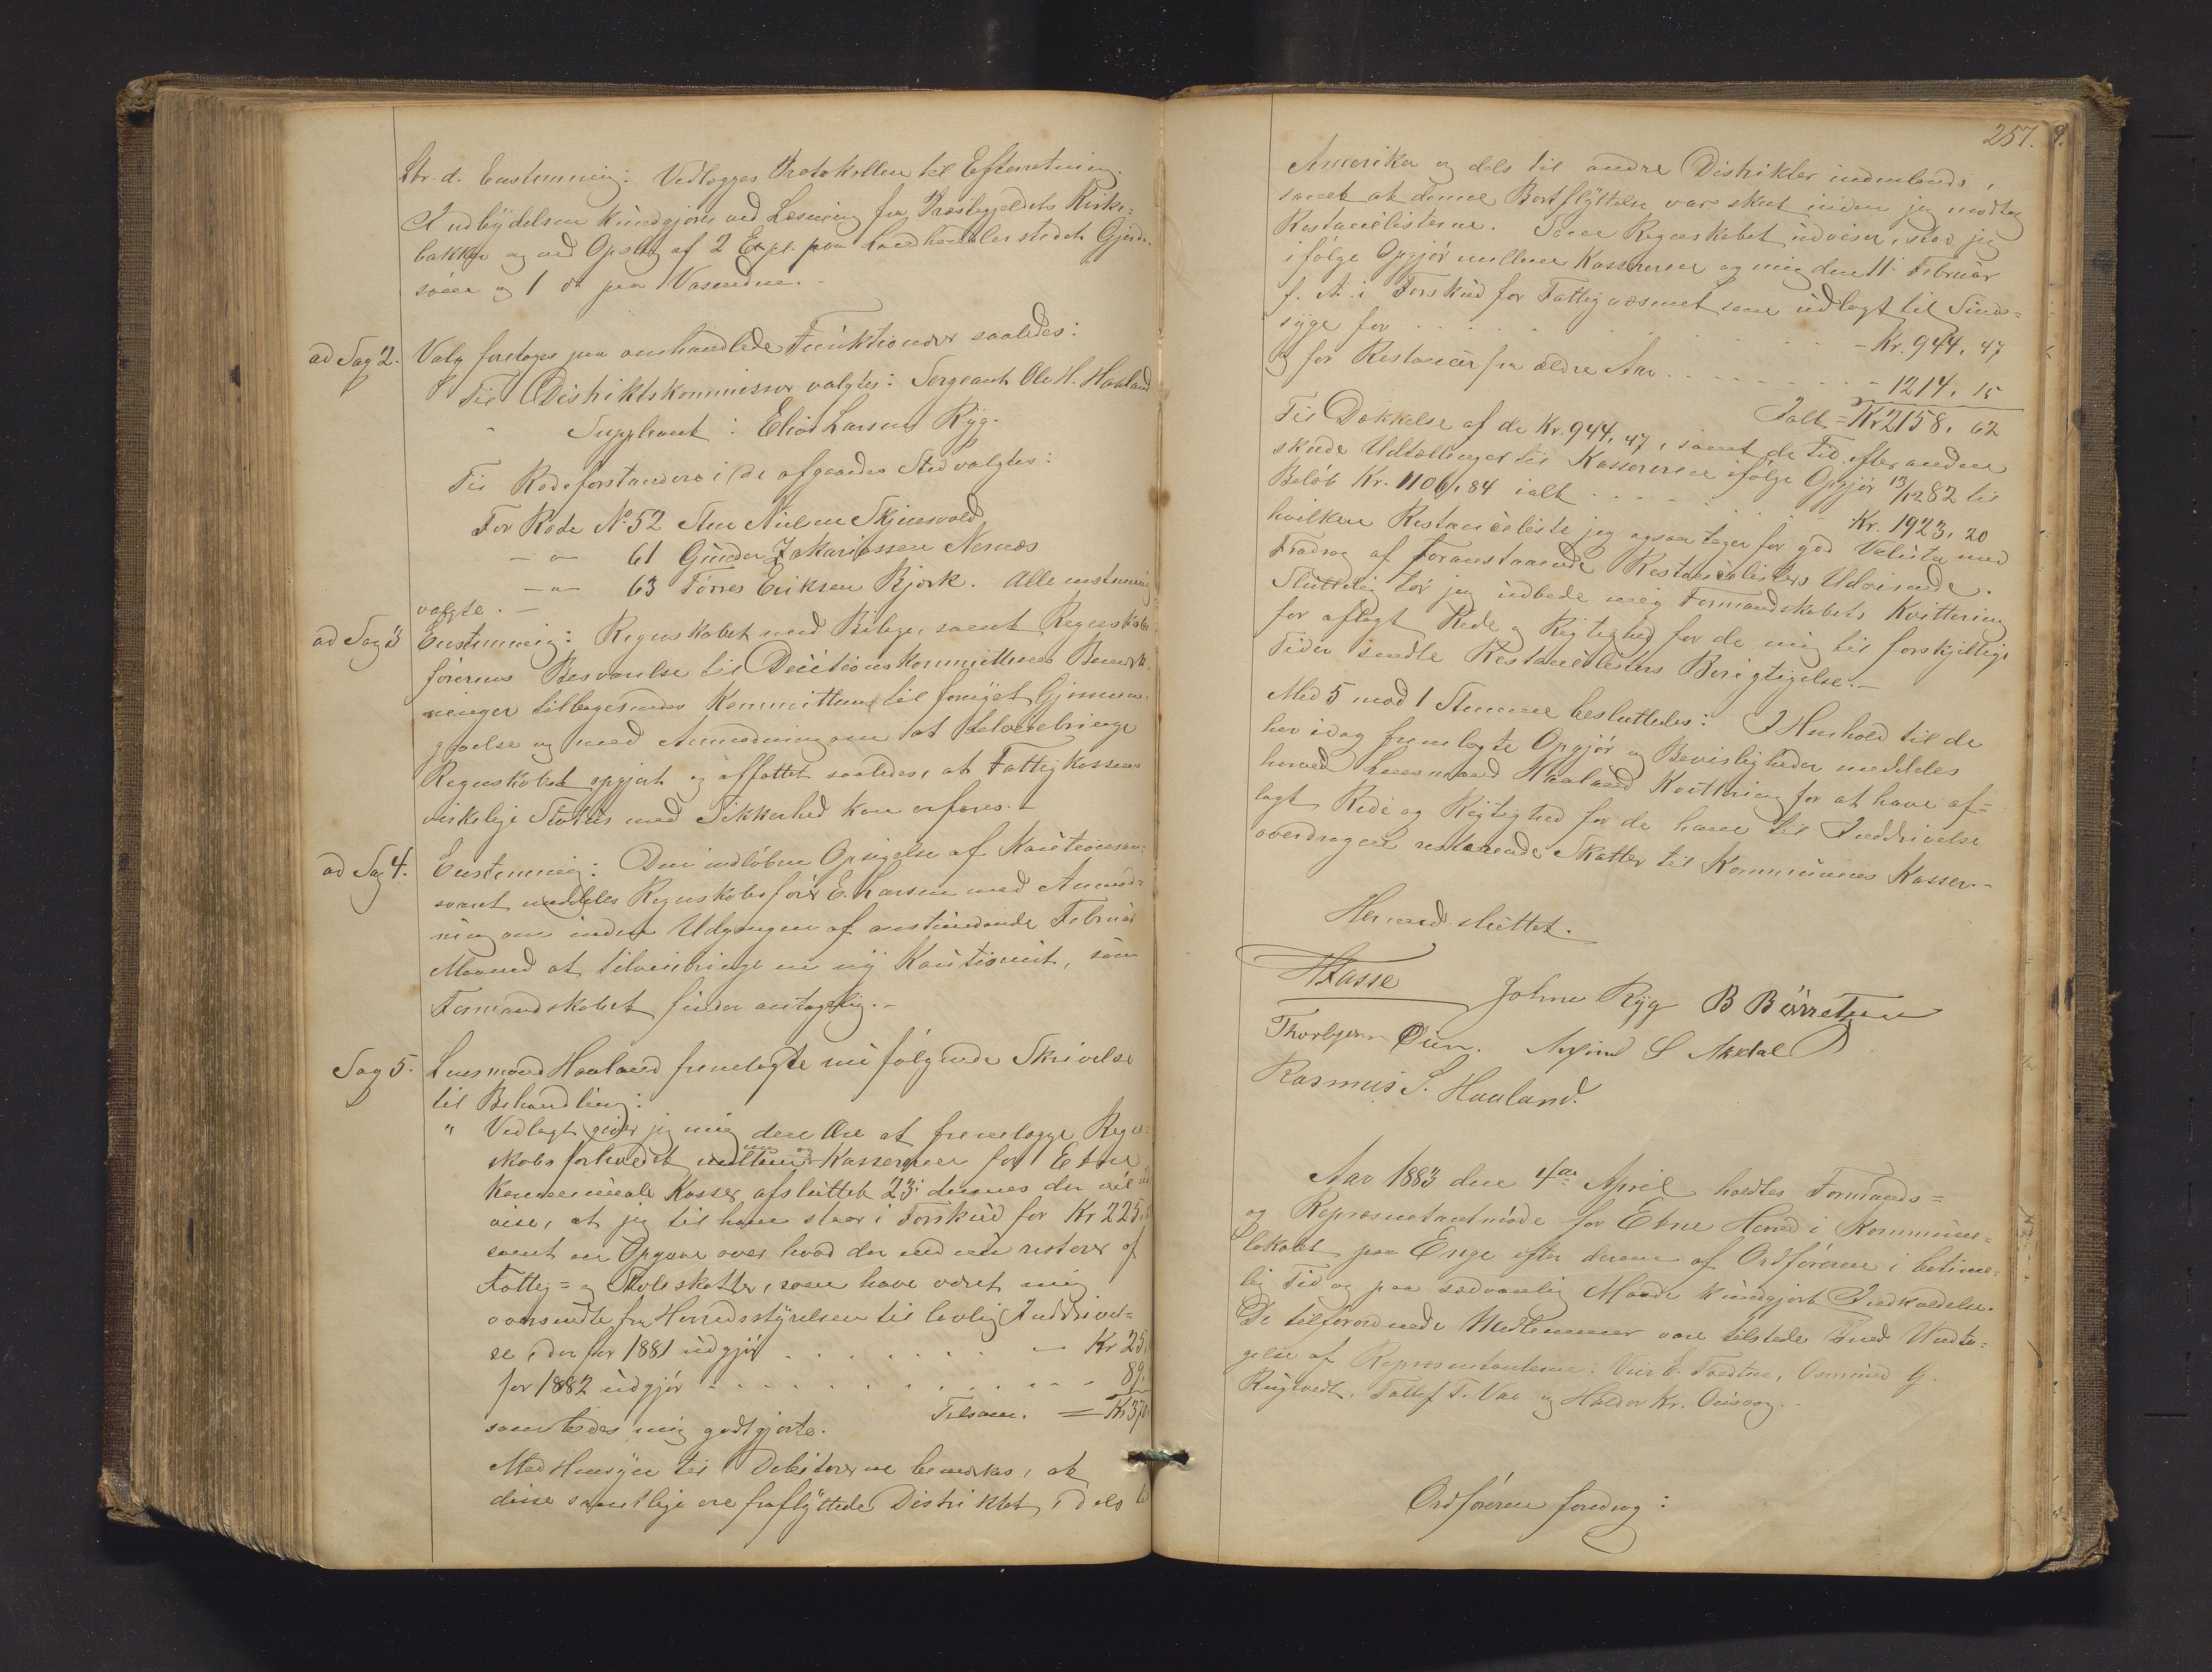 Ltr. d. Enstemmig: Vedlægges Protokollen til Efterretning.
Indbydelsen kundgjøres ved Læsning fra Præstegjeldets Kirke=
bakker og ved Opslag af 2 Expl. paa Landhandlerstedet Gjerde,
søen og 1 do paa Vasenden.
ad Sag 2. Valg foretages paa omhandlede Funktioner saaledes:
Til Distriktskommissær valgtes: Sergeant Ole H. Haaland
Suppleant: Elias Larsen Ryg.
Til Rodeforstandere i de afgaaedes Sted valgtes:
For Rode No. 52 Sten Nielsen Skjensvold
— " — 61 Gunder Zakariassen Nernæs
— " — 63 Tørres Eriksen Bjørk. Alle enstemmig
valgte. —
ad Sag 3 Enstemmig: Regnskabet med Bilage, samt Regnskabs
førerens Besvarelse til Decisionskommitteens Bemærk
ninger tilbagesendes Kommitteen til fornyet Gjennem=
gaaelse og med Anmodning om at tilveiebringe
Regnskabet opgjort og affattet saaledes, at Fattigkassens
virkelige Status med Sikkerhed kan erfares. —
ad Sag 4. Enstemmig: Den indløbne Opsigelse af Kautionsan=
svaret meddeles Regnskabsfører E. Larsen med Anmod=
ning om inden Udgangen af anstundende Februar
Maaned at tilveiebringe en ny Kautionist, som
Formandskabet finder antagelig. —
Sag 5. Lensmand Haaland fremlagte nu følgende Skrivelse
til Behandling:
" Vedlagt giver jeg mig den Ære at fremlægge Regn=
skabsforholdet mellem mig og Kassereren for Etne
Kommunale Kasser, afsluttet 23. dennes der vil ud
vise, at jeg til ham staar i Forskud for Kr 225,
samt en Opgave over hvad der end nu resterer af
Fattig= og Skoleskatter, som have været mig
oversendte fra Herredsstyrelsen til lovlig Inddrivel=
se, der for 1881 udgjør . . . . . . . — Kr 25,
for 1882 udgjør . . . . . . . . . . — 89,
Tilsam. = Kr 370,
som bedes mig godtgjorte.
Med Hensyn til Debitorerne bemærkes, at
disse samtlige ere fraflyttede Distriktet, dels til
257.
Amerika og dels til andre Distrikter indenlands,
samt at denne Bortflyttelse var skeet inden jeg modtog
Restancelisterne. Som Regnskabet udviser, stod jeg
ifølge Opgjør mellem Kassereren og mig den 11. Februar
f. A. i Forskud for Fattigvæsenet som udlagt til Sinds=
syge for . . . . . . . . . . . — Kr. 944, 47
og for Restancer fra ældre Aar . . . . . . . — 1214, 15
Ialt = Kr 2158, 62
Til Dækkelse af de Kr. 944, 47, samt de Tid efter anden
skeede Udtællinger til Kassereren ifølge Opgjør 13/12 82 til
Beløb Kr. 1106, 84 ialt . . . . . . Kr. 1923, 20
hvilken Restanceliste jeg ogsaa tager for god Valuta med
Fradrag af foranstaaende Restancelisters Udvisende.
Sluttelig tør jeg udbede mig Formandskabets Kvittering
for aflagt Rede og Rigtighed for de mig til forskjellige
Tider sendte Restancelisters Berigtigelse. —
Med 5 mod 1 Stemme besluttedes: I Henhold til de
her idag fremlagte Opgjør og Bevisligheder meddeles
herved Lensmand Haaland Kvittering for at have af=
lagt Rede og Rigtighed for de ham til Inddrivelse
overdragne resterende Skatter til Kommunens Kasser. —
Hermed sluttet.
HFasse Johne Ryg B Børretsen
Thorbjørn Øien. Arfind S Mækdal
Rasmus S. Haaland.
Aar 1883 den 4de April holdtes Formands=
og Repræsentantmøde for Etne Herred i Kommune=
lokalet paa Enge efter derom af Ordføreren i betime=
lig Tid og paa sædvanlig Maade kundgjort Indkaldelse.
De tilforordnede Medlemmer vare tilstede med Undta=
gelse af Repræsentanterne: E. Tvedten, Osmund G.
Rugtvedt, Tollef T. Vae og Haldor Kr. Øusvog. —
Ordføreren foredrog: